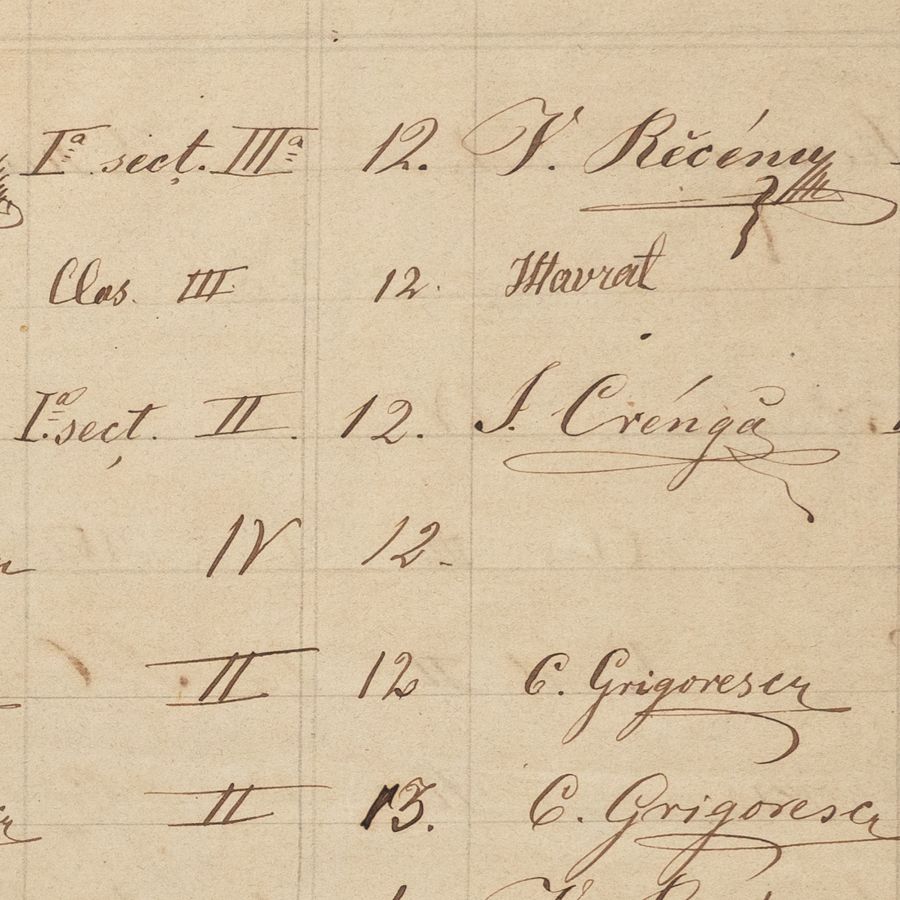 Iª secț. IIIª 12. V. Rĕcénu
Clas. III 12. Mavrat
Iª secț. II. 12. I. Créngă
IV 12-
II 12 C. Grigorescu
II 13. C. Grigorescu